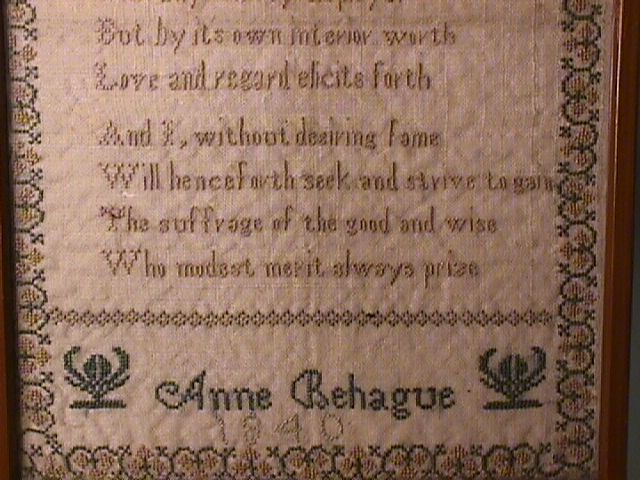 But by its own interior worth
Love and regard elicits forth
And I, without desiring fame
Will henceforth seek and strive to gain
The suffrage of the good and wise
Who modest merit always prize
Anne Behague
1840